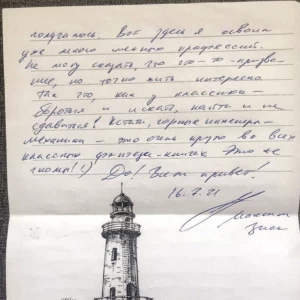 получалось. Вот здесь я освоил
уже много мелких профессий.
Не могу сказать, что это - призва-
ние, но точно жить интересно
Так что, как у классика -
бороться и искать, найти и не
сдаваться! Кстати, горные инженеры-
механики - это очень круто во всех
классных фэнтези-книгах. Это же
гномы! :)
Да! Всем привет!
16.7.21